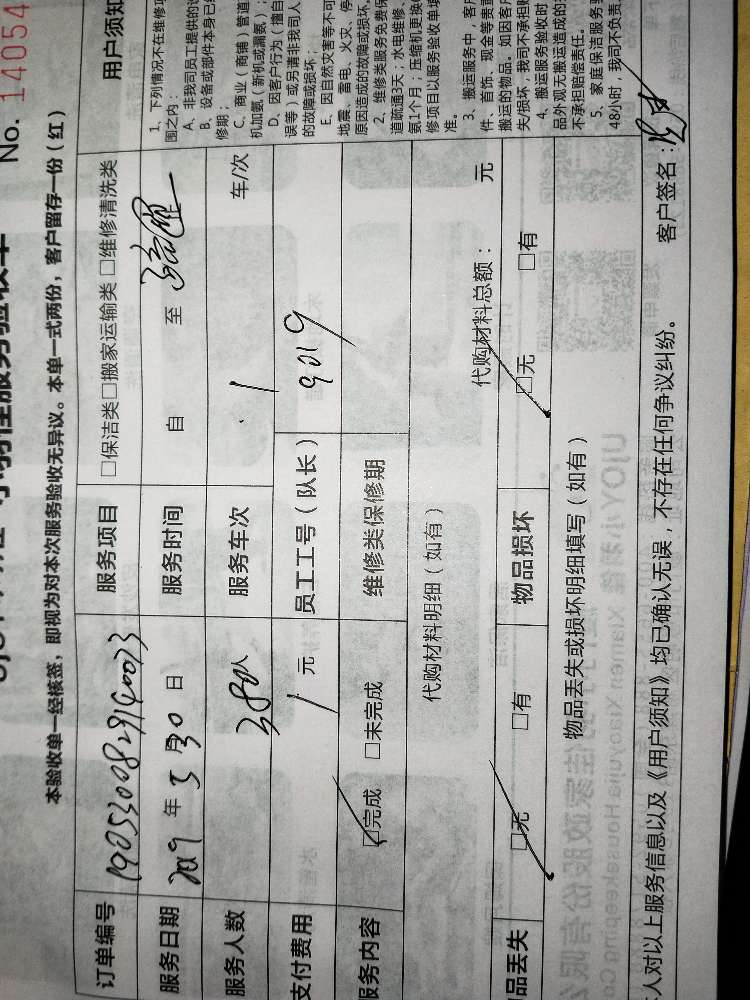 No. 14054
本验收单一经核签，即视为对本次服务验收无异议。本单一式两份，客户留存一份（红）
订单编号
服务项目 □保洁类□搬家运输类 □维修清洗类
服务日期 2019 年 5 月 30 日 服务时间 自 至
服务人数 人 服务车次 1 车/次
支付费用 元 员工工号（队长） 9019
服务内容 □完成 □未完成 维修类保修期
代购材料明细（如有） 代购材料总额： 元
物品丢失 □无 □有 物品损坏 □无 □有
物品丢失或损坏明细填写（如有）
人对以上服务信息以及《用户须知》均已确认无误，不存在任何争议纠纷。 客户签名：
用户须知
1、下列情况不在维修
围之内：
A、非我司员工提供的
B、设备或部件本身已
修期；
C、商业（商铺）管道
机加氨（新机或漏氨）；
D、因客户行为（擅自
误等）或另请非我司人
的故障或损坏；
E、因自然灾害等不可
地震、雷电、火灾、
原因造成的故障或损坏。
2、维修类服务免费保
道疏通3天；水电维修、
氨1个月；压缩机更换
修项目以服务验收单填
准。
3、搬运服务中，客户
件、首饰、现金等贵重
搬运的物品。如因客户
失/损坏，我司不承担赔
4、搬运服务验收时
品外观无搬运造成的
不承担赔偿责任。
5、家庭保洁服务
48小时，我司不负责
UJOY小羽佳 Xiamen Xiaoyujia Housekeeping Co